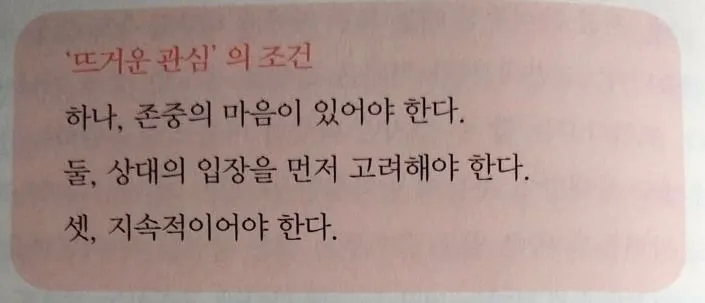 ‘뜨거운 관심’의 조건
하나, 존중의 마음이 있어야 한다.
둘, 상대의 입장을 먼저 고려해야 한다.
셋, 지속적이어야 한다.